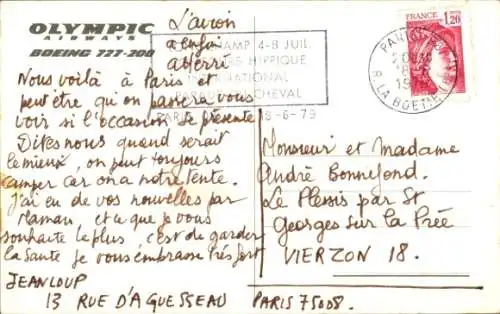 OLYMPIC
AIRWAYS
BOEING 727-200
L'avion
a enfin
atterri
Nous voilà à Paris et
peut être qu'on passera vous
voir si l'occasion se présente
Dites nous quand serait
le mieux, on peut toujours
camper car on a notre tente.
J'ai eu de vos nouvelles par
Maman, et ce que je vous
souhaite le plus c'est de garder
la santé je vous embrasse très fort
JEANLOUP
13 RUE D'AGUESSEAU PARIS 75008.
CHAMP 4-8 JUIL
HIPPIQUE
INTERNATIONAL
CHEVAL
18-6-79
FRANCE
1,20
PARIS
R. LA BOETIE
Monsieur et Madame
André Bonnefond.
Le Plessis par St
Georges sur la Prée
VIERZON 18.